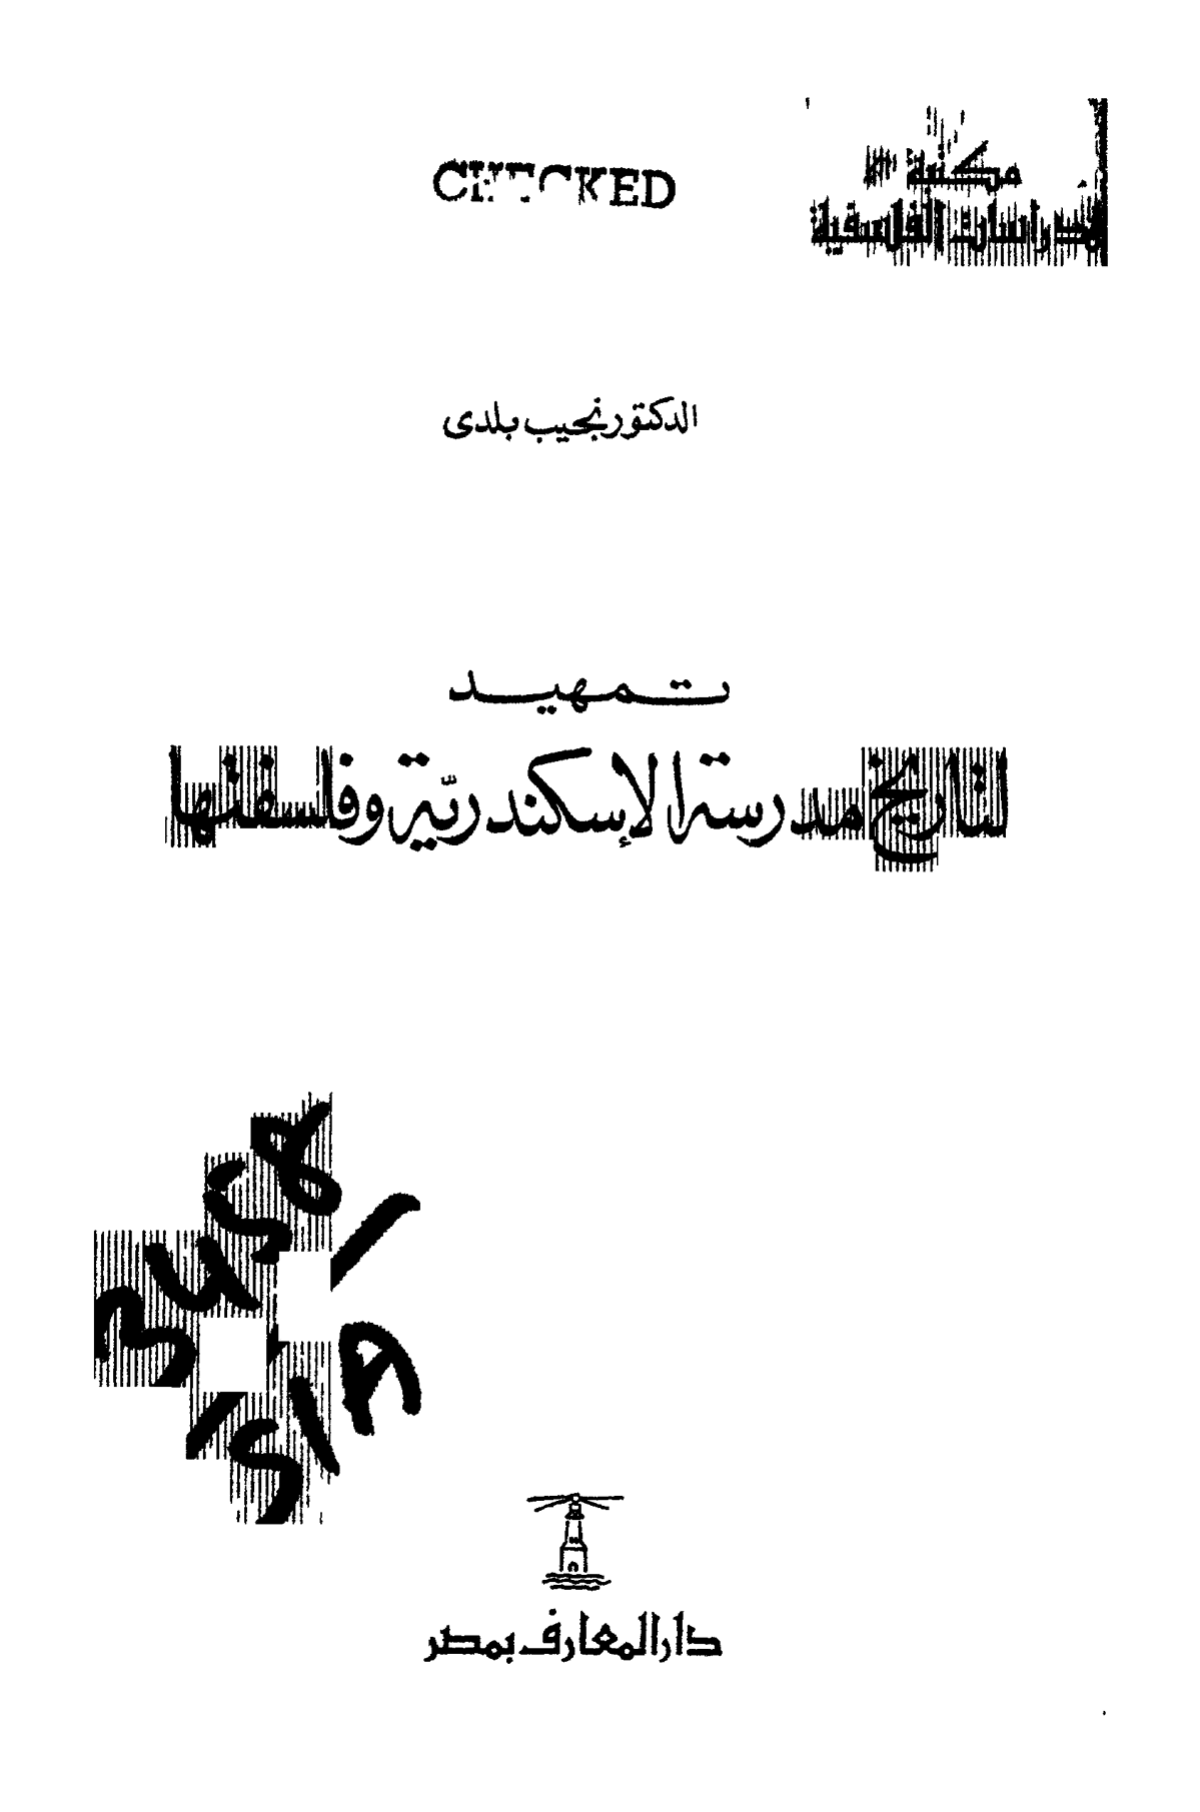 CHECKED
مكتبة
الدراسات الفلسفية
الدكتور نجيب بلدى
تمهيد
لتاريخ مدرسة الإسكندرية وفلسفتها
دار المعارف بمصر